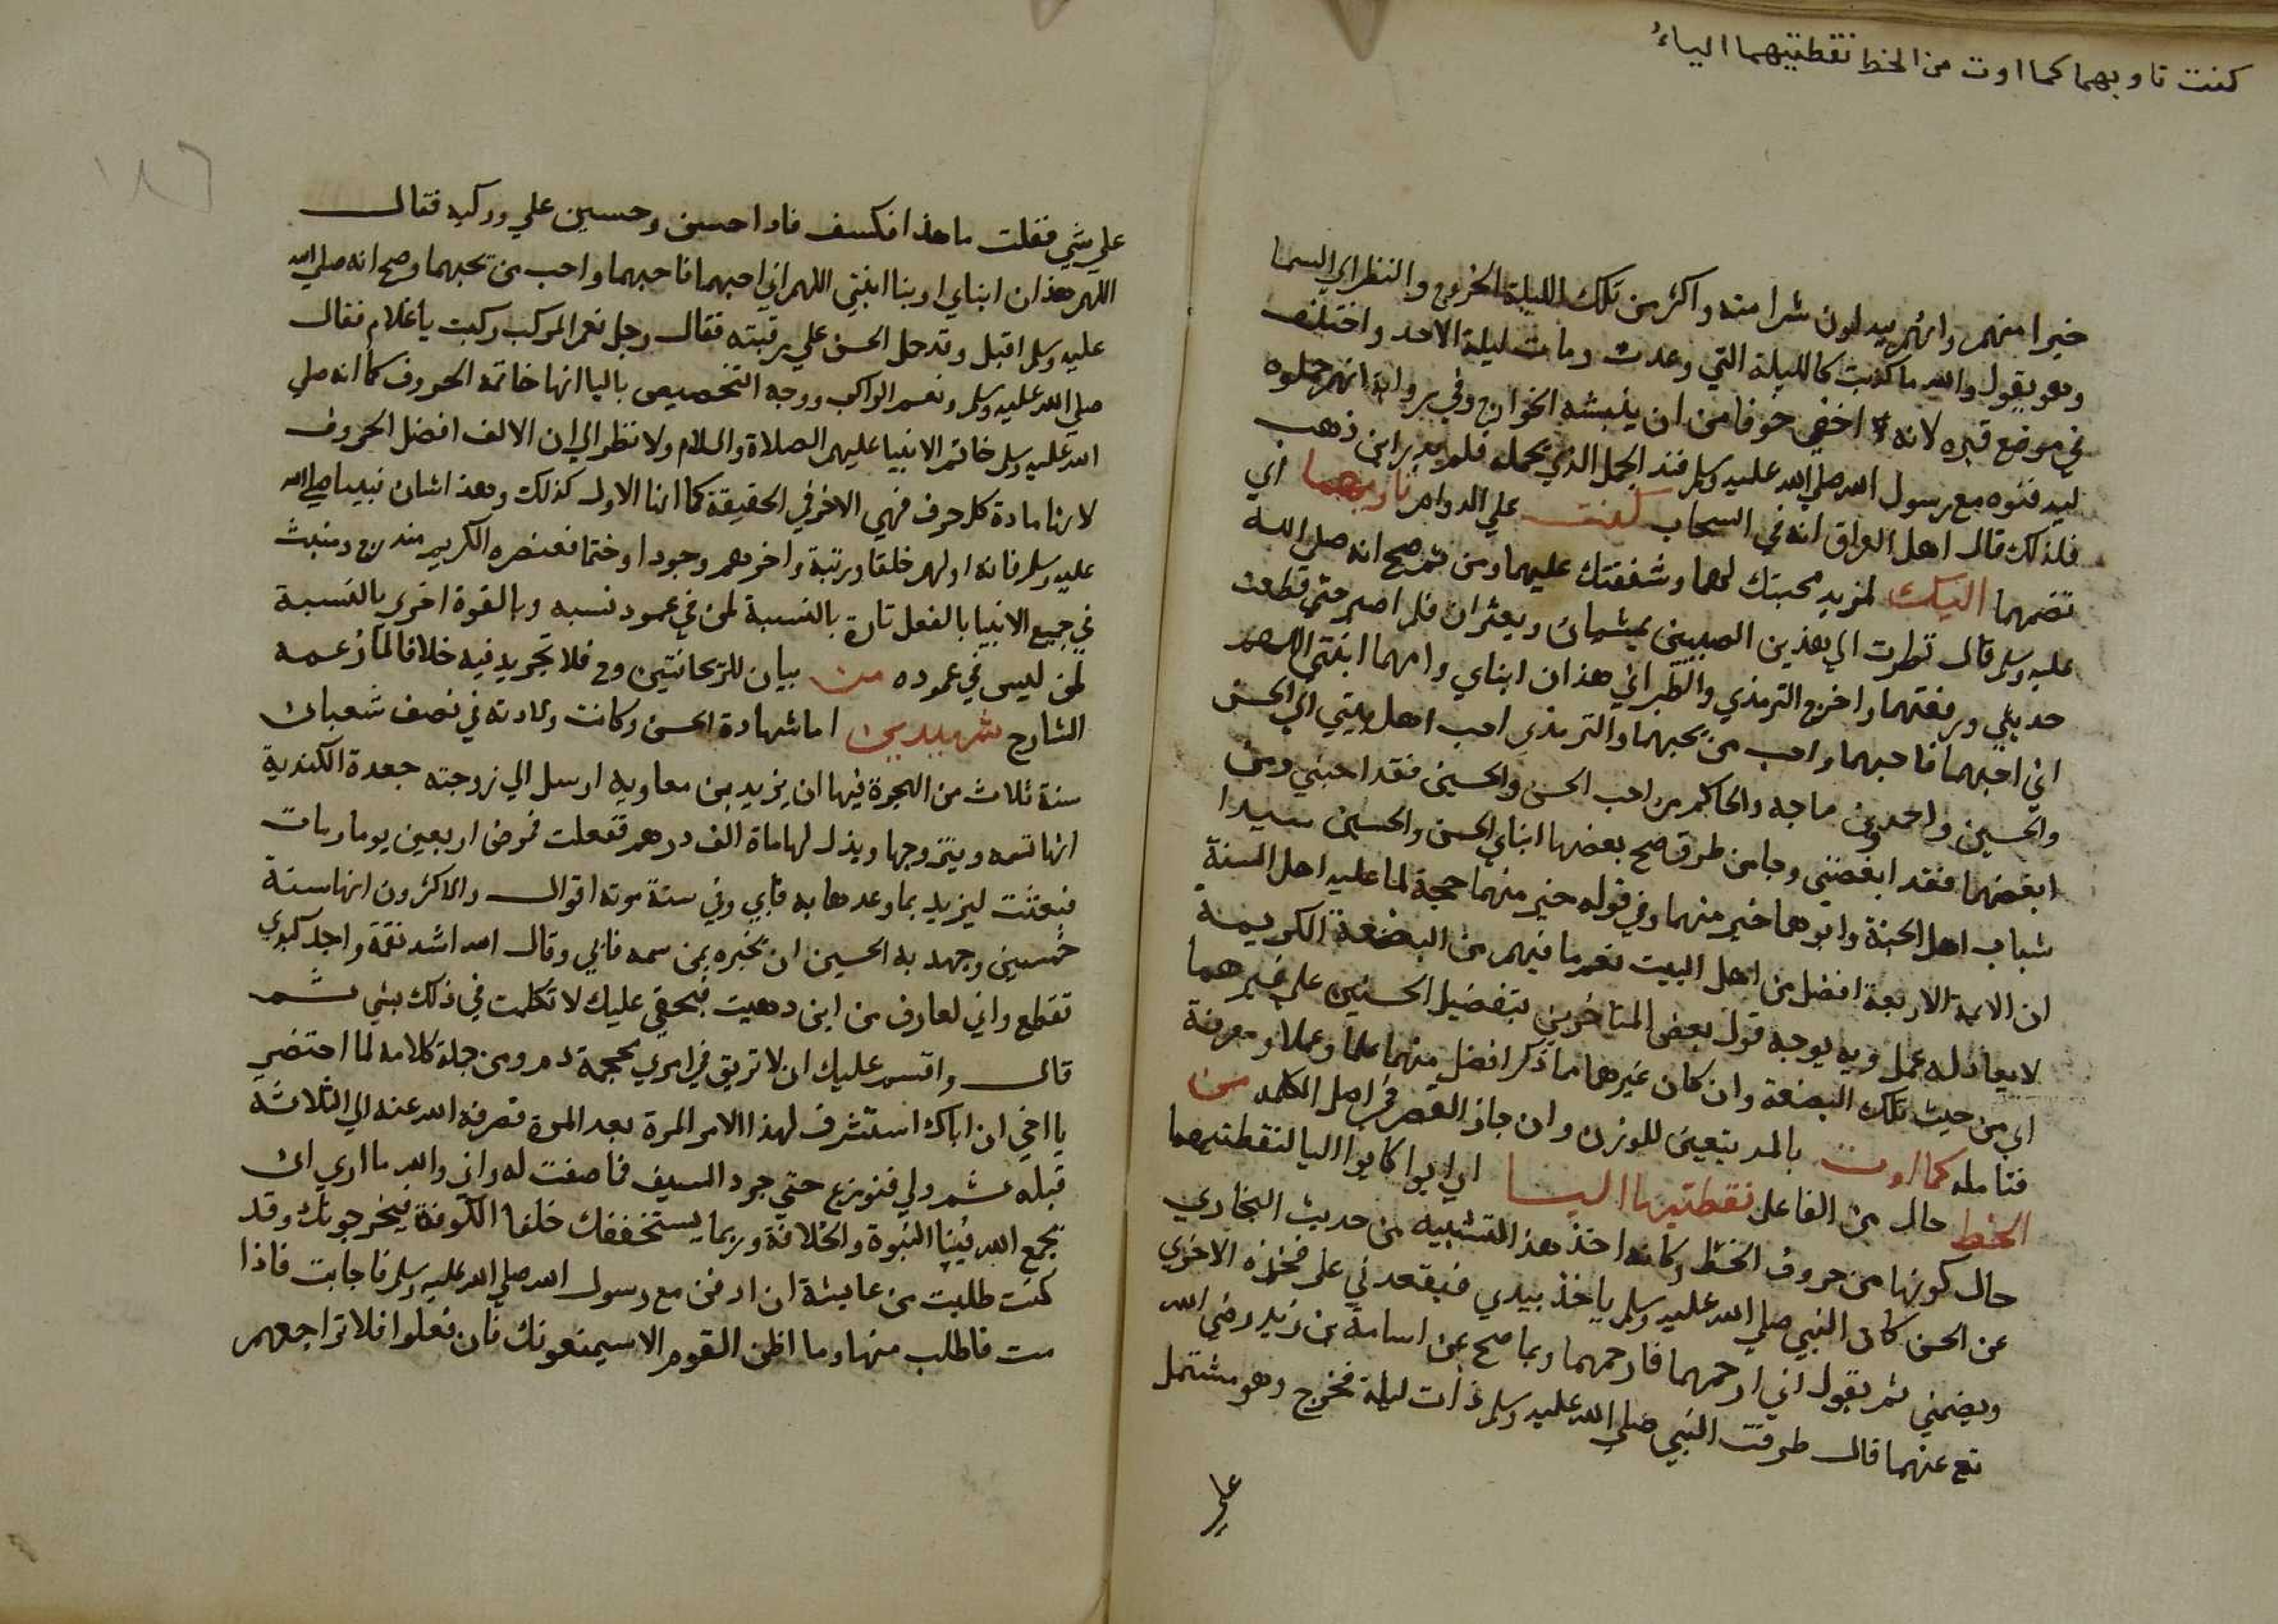 كنت تاويهما كما اوت من الخط نقطتيهما الياءُ
خيرا منهم وانهم يبدلون شرا منه واكثر من تلك الليلة الخروج والنظر الي السما
وهو يقول والله ما كذبت كالليلة التي وعدت ومات ليلة الاحد واختلف
في موضع قبره لانه اخفي خوفا من ان ينبشه الخوارج وفي رواية انهم حملوه
ليدفنوه مع رسول الله صلي الله عليه وسلم فند الجمل الذي يحمله فلم يدر اين ذهب
فلذلك قال اهل العراق انه في السحاب كنت علي الدوام تاويهما اي
تضمهما اليك لمزيد محبتك لهما وشفقتك عليهما ومن ثم صح انه صلي الله
عليه وسلم قال نظرت الي هذين الصبيين يمشيان ويعثران فلم اصبر حتي قطعت
حديثي ورفعتهما واخرج الترمذي والطبراني هذان ابناي وامهما ابنتي اللهم
اني احبهما فاحبهما واحب من يحبهما والترمذي احب اهل بيتي الي الحسن
والحسين واحمد وبن ماجه والحاكم من احب الحسن والحسين فقد احبني ومن
ابغضهما فقد ابغضني وجا من طرق صح بعضها ابناي الحسن والحسين سيدا
شباب اهل الجنة وابوهما خير منهما وفي قوله خير منهما حجة لما عليه اهل السنة
ان الايمة الاربعة افضل من اهل البيت نعم ما فيهم من البضعة الكريمة
لا يعادله عمل وبه يوجه قول بعض المتاخرين بتفضيل الحسنين علي غيرهما
اي من حيث تلك البضعة وان كان غيرهما مما ذكر افضل منهما علما وعملا ومعرفة
فتامله كما اوت بالمد يتعين للوزن وان جاز القصر في اصل الكلمه من
الخط حال من الفاعل نقطتيها اليا اي ايوا كايوا اليا لنقطتيهما
حال كونها من حروف الخط وكانه اخذ هذا التشبيه من حديث البخاري
عن الحسن كان النبي صلي الله عليه وسلم ياخذ بيدي فيقعدني علي فخذه الاخري
ويضمني ثم يقول اني ارحمهما فارحمهما وبما صح عن اسامة بن زيد رضي الله
تع عنهما قال طرقت النبي صلي الله عليه وسلم ذات ليلة فخرج وهو مشتمل
علي
١٨٦
علي شي فقلت ما هذا فكسف فاذا حسن وحسين علي وركيه فقال
اللهم هذان ابناي وابنا ابنتي اللهم اني احبهما فاحبهما واحب من يحبهما وصح انه صلي الله
عليه وسلم اقبل وقد حمل الحسن علي رقبته فقال رجل نعم المركب ركبت يا غلام فقال
صلي الله عليه وسلم ونعم الراكب ووجه التخصيص باليا انها خاتمة الحروف كما انه صلي
الله عليه وسلم خاتم الانبيا عليهم الصلاة والسلام ولا نظر الي ان الالف افضل الحروف
لانها مادة كل حرف فهي الاخر في الحقيقة كما انها الاول كذلك وهذا شان نبينا صلي الله
عليه وسلم فانه اولهم خلقا ورتبة واخرهم وجودا وختما فعنصره الكريم مندرج ومنبث
في جميع الانبيا بالفعل تارة بالنسبة لمن في عمود نسبه وبالقوة اخري بالنسبة
لمن ليس في عموده من بيان للريحانتين وح فلا تجريد فيه خلافا لما زعمه
الشارح شهيدين اما شهادة الحسن وكانت ولادته في نصف شعبان
سنة ثلاث من الهجرة فيها ان يزيد بن معاويه ارسل الي زوجته جعدة الكندية
انها تسمه ويتزوجها وبذل لها مائة الف درهم ففعلت فمرض اربعين يوما ومات
فبعثت ليزيد بما وعدها به فابي وفي سنة موته اقوال والاكثرون انها سنة
خمسين وجهد به الحسين ان يخبره بمن سمه فابي وقال الله اشد نقمة واجد كبدي
تقطع واني لعارف من اين دهيت فبحقي عليك لا تكلمت في ذلك بشي ثم
قال واقسم عليك ان لا تريق في امري محجمة دم ومن جملة كلامه لما احتضر
يا اخي ان اباك استشرف لهذا الامر المرة بعد المرة فصرفه الله عنه الي الثلاثة
قبله ثم ولي فنوزع حتي جرد السيف فما صفت له واني والله ما اري ان
يجمع الله فينا النبوة والخلافة وربما يستخففك خلفا الكوفة فيخرجونك وقد
كنت طلبت من عايشة ان ادفن مع رسول الله صلي الله عليه وسلم فاجابت فاذا
مت فاطلب منها وما اظن القوم الا سيمنعونك فان فعلوا فلا تراجعهم